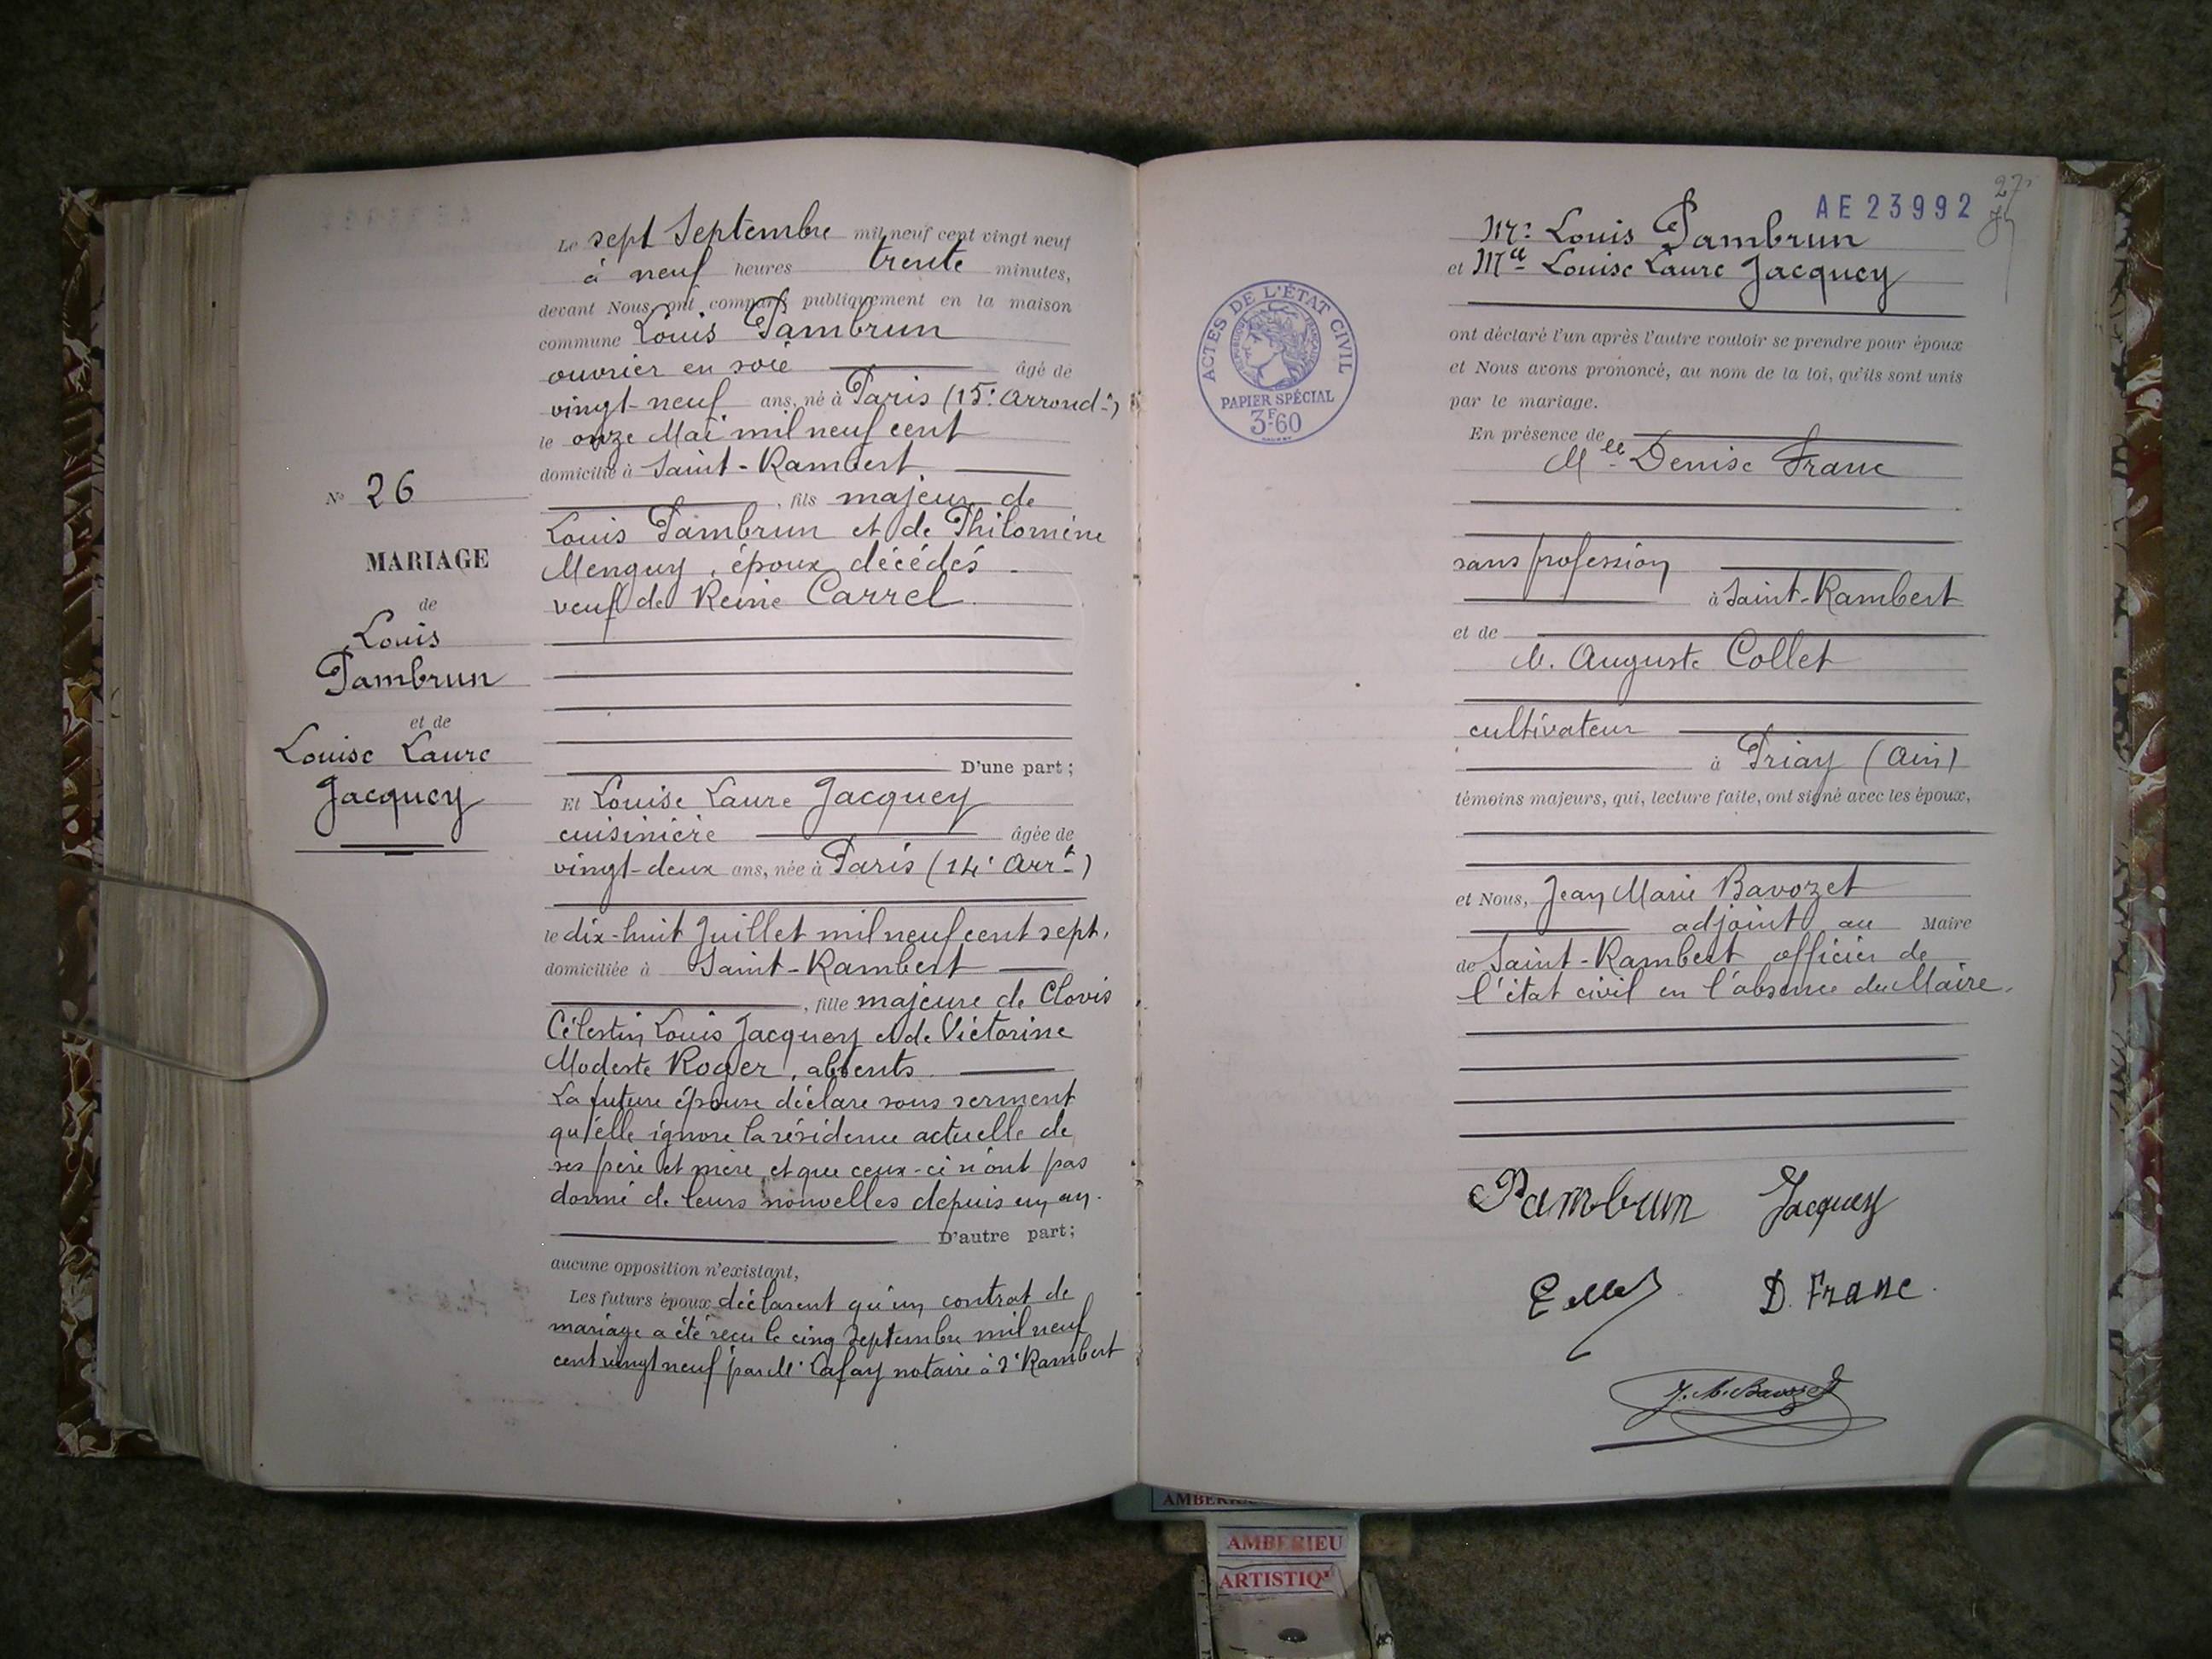 Le sept Septembre mil neuf cent vingt neuf
à neuf heures trente minutes,
devant Nous ont comparu publiquement en la maison
commune Louis Pambrun
ouvrier en soie âgé de
vingt-neuf ans, né à Paris (15e Arrondt)
le onze Mai mil neuf cent
domicilié à Saint-Rambert
, fils majeur de
Louis Pambrun et de Philomène
Menguy, époux décédés.
veuf de Reine Carrel.
D'une part ;
Et Louise Laure Jacquey
cuisinière âgée de
vingt-deux ans, née à Paris (14e Arrt)
le dix-huit Juillet mil neuf cent sept,
domiciliée à Saint-Rambert
, fille majeure de Clovis
Célestin Louis Jacquey et de Victorine
Modeste Roger, absents.
La future épouse déclare sous serment
qu'elle ignore la résidence actuelle de
ses père et mère et que ceux-ci n'ont pas
donné de leurs nouvelles depuis un an.
D'autre part ;
aucune opposition n'existant,
Les futurs époux déclarent qu'un contrat de
mariage a été reçu le cinq Septembre mil neuf
cent vingt neuf par Me Lafay notaire à St Rambert
No 26
MARIAGE
de
Louis
Pambrun
et de
Louise Laure
Jacquey
AE 23992
27
Mr Louis Pambrun
et Mlle Louise Laure Jacquey
ont déclaré l'un après l'autre vouloir se prendre pour époux
et Nous avons prononcé, au nom de la loi, qu'ils sont unis
par le mariage.
En présence de
Mlle Denise Franc
sans profession
à Saint-Rambert
et de
M. Auguste Collet
cultivateur
à Priay (Ain)
témoins majeurs, qui, lecture faite, ont signé avec les époux,
et Nous, Jean Marie Bavozet
adjoint au Maire
de Saint-Rambert officier de
l'état civil en l'absence du Maire.
Pambrun Jacquey
Collet D. Franc.
J. M. Bavozet
ACTES DE L'ÉTAT CIVIL
RÉPUBLIQUE FRANÇAISE
PAPIER SPÉCIAL
3F60
AMBERIEU
AMBERIEU
ARTISTIQ